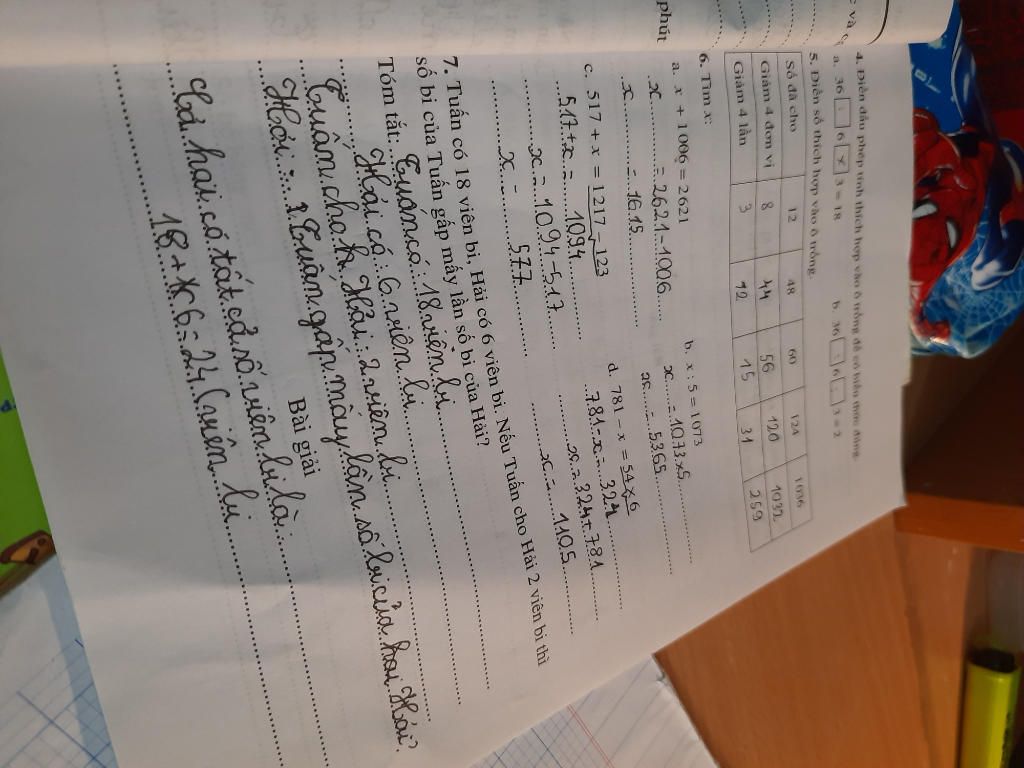 phút
4. Điền dấu phép tính thích hợp vào ô trống để có biểu thức đúng.
a. 36 - 6 × 3 = 18 b. 36 : 6 : 3 = 2
5. Điền số thích hợp vào ô trống.
Số đã cho 12 48 60 124 1036
Giảm 4 đơn vị 8 44 56 120 1032
Giảm 4 lần 3 12 15 31 259
6. Tìm x:
a. x + 1006 = 2621 b. x : 5 = 1073
x = 2621-1006 x = 1073×5
x = 1615 x = 5365
c. 517 + x = 1217 - 123 d. 781 - x = 54 × 6
517+x = 1094 781-x = 324
x = 1094-517 x = 324+781
x = 577 x = 1105
7. Tuấn có 18 viên bi, Hải có 6 viên bi. Nếu Tuấn cho Hải 2 viên bi thì
số bi của Tuấn gấp mấy lần số bi của Hải?
Tóm tắt: Tuấn có: 18 viên bi
Hải có: 6 viên bi
Tuấn cho h Hải: 2 viên bi
Hỏi: Tuấn gấp mấy lần số bi của hai Hải?
Bài giải
Cả hai có tất cả số viên bi là:
18 + 6 = 24 (viên bi